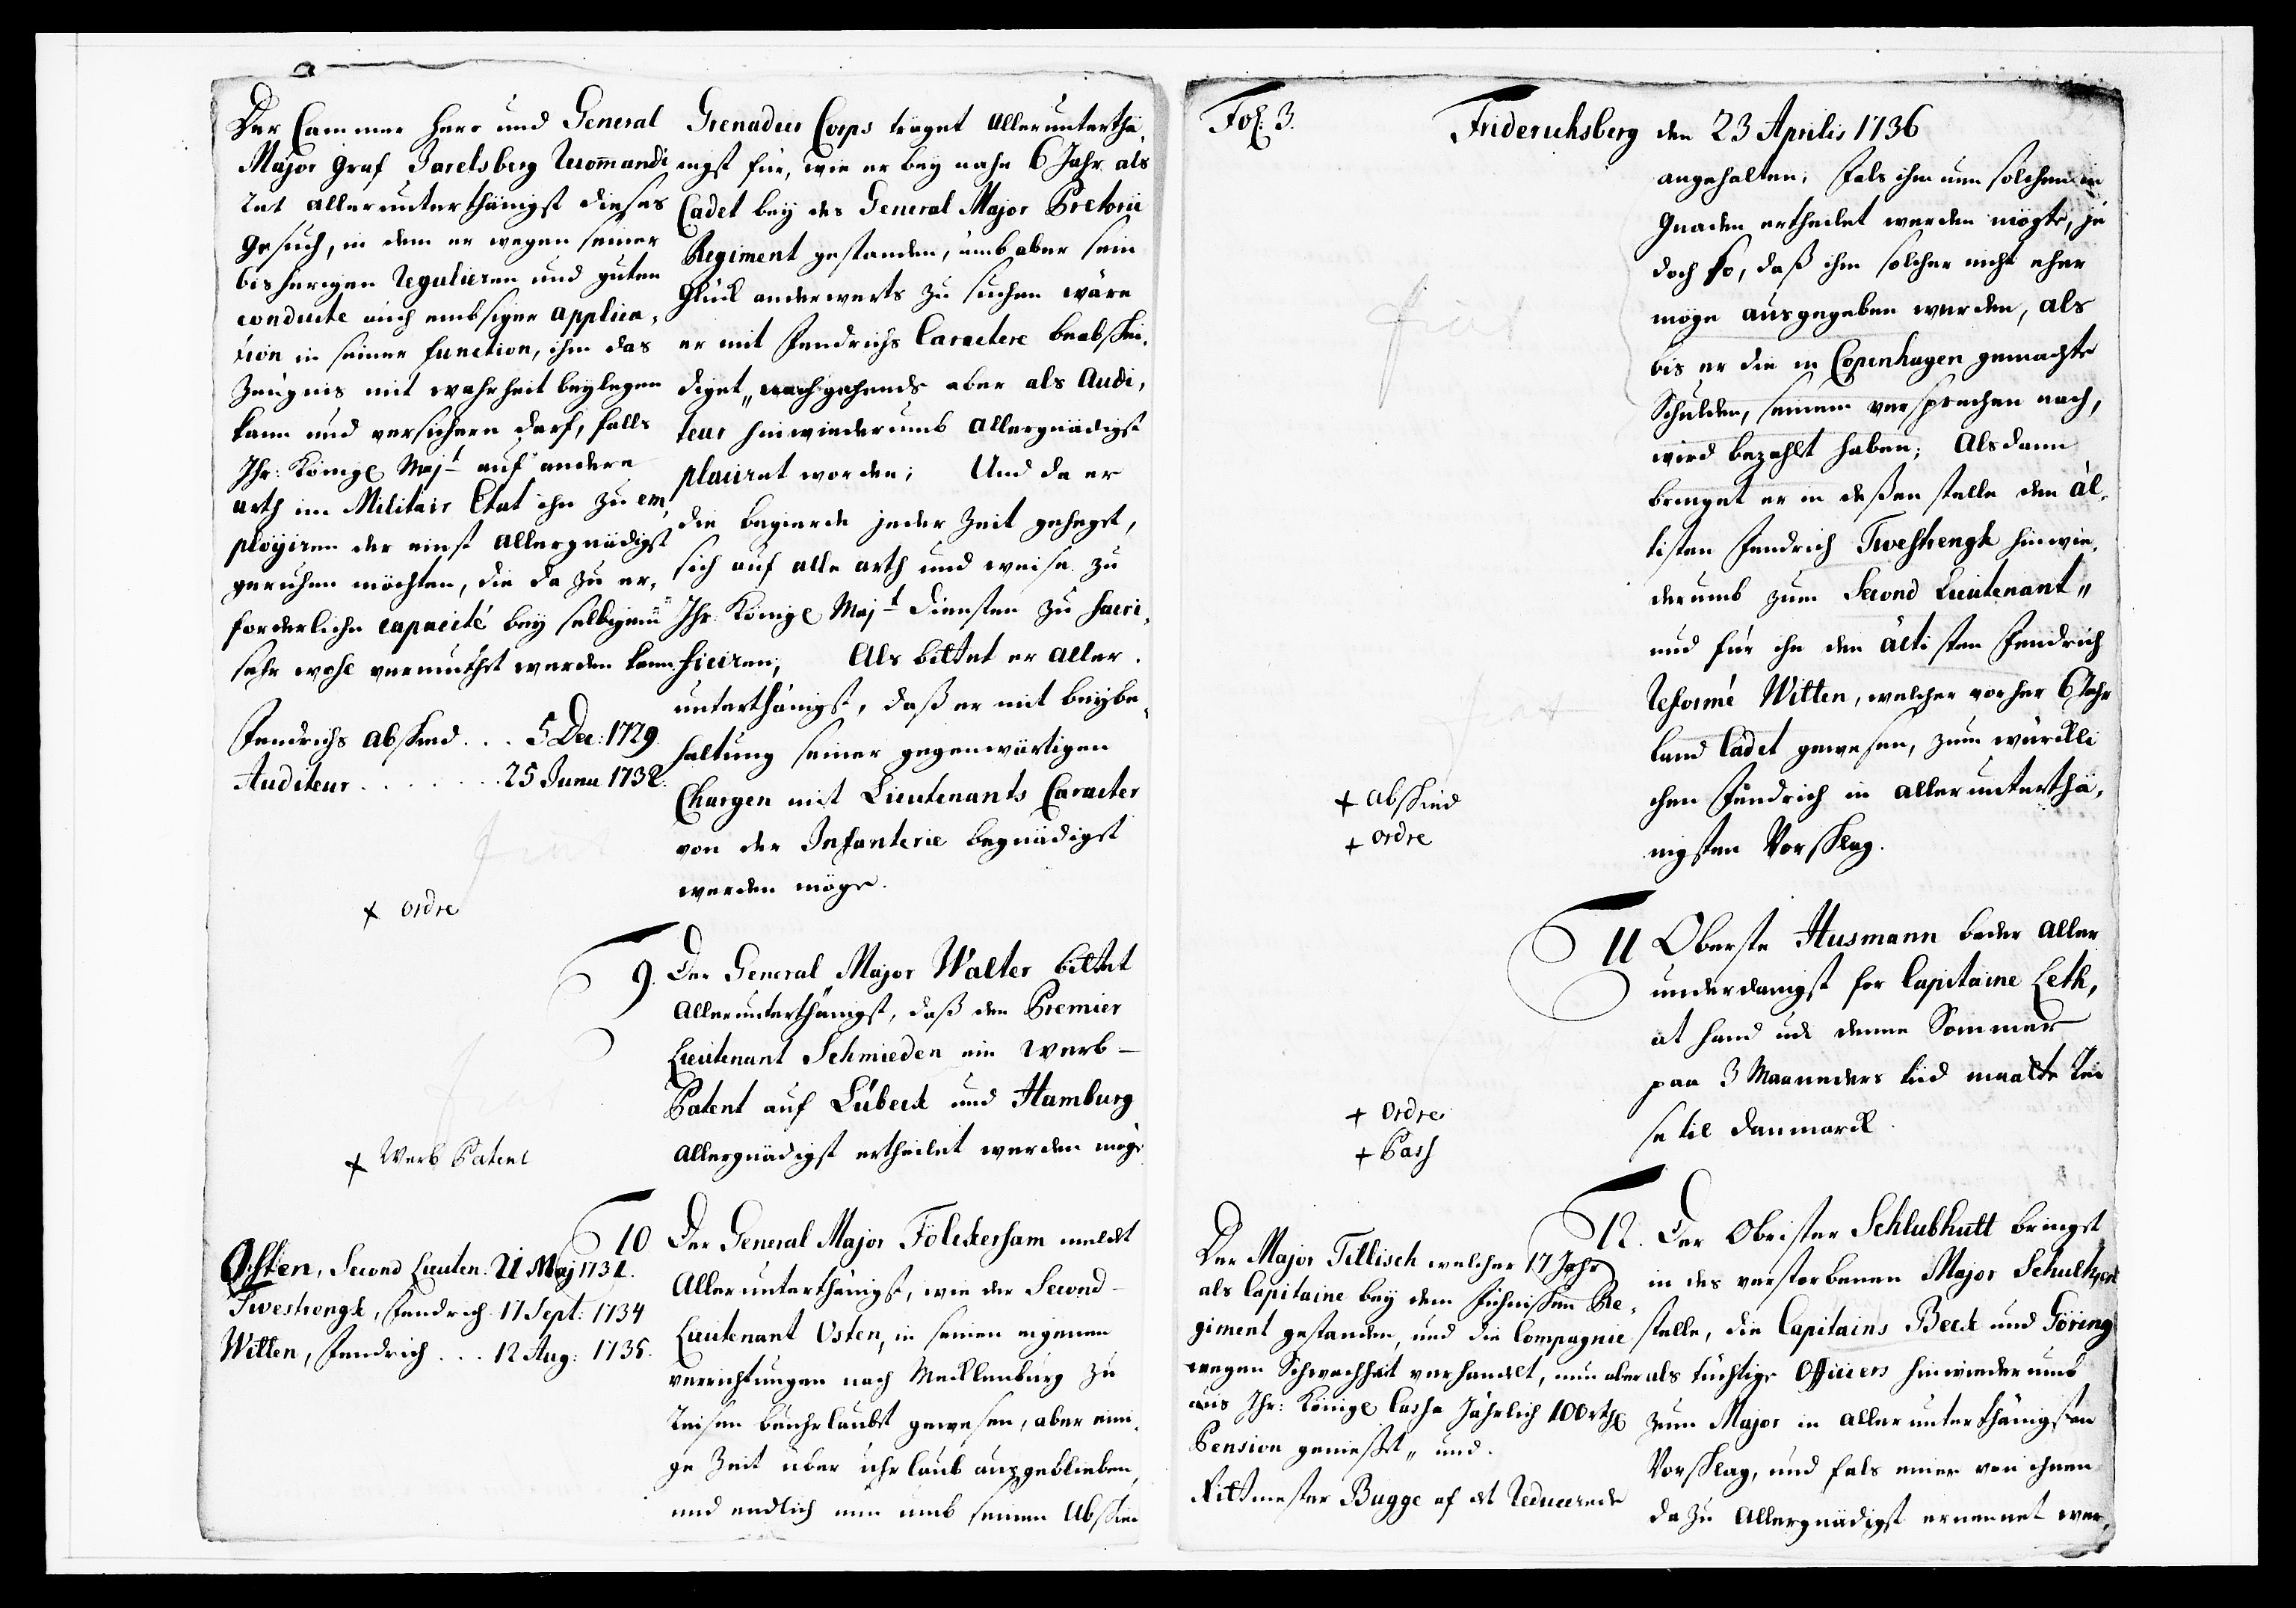 Der Cammer Herr und General
Major Graf Jarelsberg recommandi
ret allerunterthänigst dieses
Gesuch, in dem er wegen seiner
bisherigen regulieren und guten
conduite auch embsiger applica,
tion in seiner function, ihm das
Zeugnis mit wahrheit beylegen
kann und versichern darf, falls
Ihr: Königl Majt auf andere
arth im Militair Etat ihn zu em,
ployiren der einst allergnädigst
geruhen möchten, die da zu er,
forderliche capacité bey selbigem
sehr wohl vermuthet werden kann.
Fendrichs abschied . . . 5 Dec: 1729.
Auditeur . . . . . . . 25 Junii 1732.
fiat
+ ordre
fiat
+ Werb Patent
Osten, Second Lieuten. 21 Maj 1731.
Twestrengk, Fendrich 17 Sept: 1734
Witten, Fendrich . . . 12 Aug: 1735.
Grenadier Corps träget allerunterthä,
nigst für, wie er bey nahe 6 Jahr als
Cadet bey des General Major Pretorii
Regiment gestanden, umb aber sein
Glück anderwerts zu suchen wäre
er mit Fendrichs Caractere beabschei,
diget, nachgehends aber als Audi,
teur hinwiederumb allergnädigst
placiret worden; Und da er
die begierde jeder Zeit geheget,
sich auf alle arth und weise zu
Ihr: Königl Majt Diensten zu sacri,
ficiren; Als bittet er aller,
unterthänigst, daß er mit beybe,
haltung seiner gegenwärtigen
Chargen mit Lieutenants Caracter
von der Infanterie begnädigst
werden möge.
9. Der General Major Walter bittet
allerunterthänigst, daß dem Premier
Lieutenant Schmieden ein Werb-
Patent auf Lübeck und Hamburg
allergnädigst ertheilet werden möge
10 Der General Major Fölckersam meldet
allerunterthänigst, wie der Second-
Lieutenant Osten, in seinen eigenen
verrichtungen nach Mecklenburg zu
reisen beuhrlaubt gewesen, aber eini,
ge Zeit über uhrlaub ausgeblieben,
und endlich nun umb seinen Abschied
Fol: 3.
Friderichsberg den 23 Aprilis 1736
angehalten; Fals ihm nun solcher in
Gnaden ertheilet werden mögte, je
doch so, daß ihm solcher nicht eher
möge ausgegeben werden, als
bis er die in Copenhagen gemachte
Schulden, seinem versprechen nach,
wird bezahlt haben; Alsdann
bringet er in deßen stelle den äl,
tisten Fendrich Twestrengk hinwie,
derumb zum Second Lieutenant
und für ihn den ältisten Fendrich
reformé Witten, welcher vorher 6 Jahr
land Cadet gewesen, zum würckli
chen Fendrich in allerunterthä,
nigsten Vorschlag.
fiat
fiat
+ Abschied
+ ordre
11 Oberste Husmann beder aller
underdanigst for Capitaine Leth,
at hand udi denne Sommer
paa 3 Maaneders tid maatte rei
se til Danmarck.
+ Ordre
+ Pass
12. Der Obrister Schlubhutt bringet
in des verstorbenen Major Schultzen
stelle, die Capitains Beck und Göring
als tüchtige Officiers hinwiederumb
zum Major in allerunterthänigsten
Vorschlag, und fals einer von ihnen
da zu Allergnädigst ernennet wer,
Der Major Tillisch welcher 17 Jahr
als Capitaine bey dem Fühnischen Re,
giment gestanden, und die Compagnie
wegen Schwachheit verhandelt, nun aber
aus Ihr: Königl Cassa Jährlich 100 rthl
Pension genießet, und
Rittmester Bugge af det reducerede